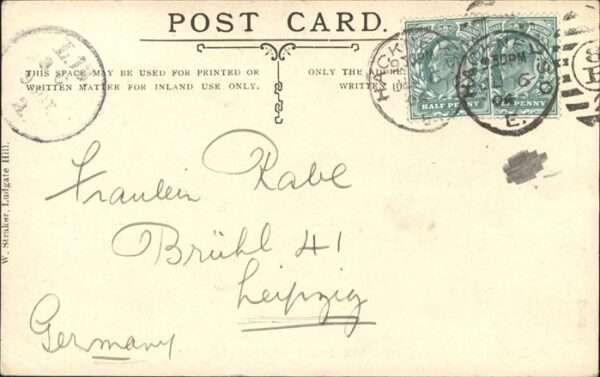 POST CARD.
THIS SPACE MAY BE USED FOR PRINTED OR
WRITTEN MATTER FOR INLAND USE ONLY.
ONLY THE
WRITTEN
HALF PENNY
PENNY
HACK
30PM
6
06
E.
E.
W. Straker, Ludgate Hill.
Fraulein Rabe
Brühl 41
Leipzig
Germany